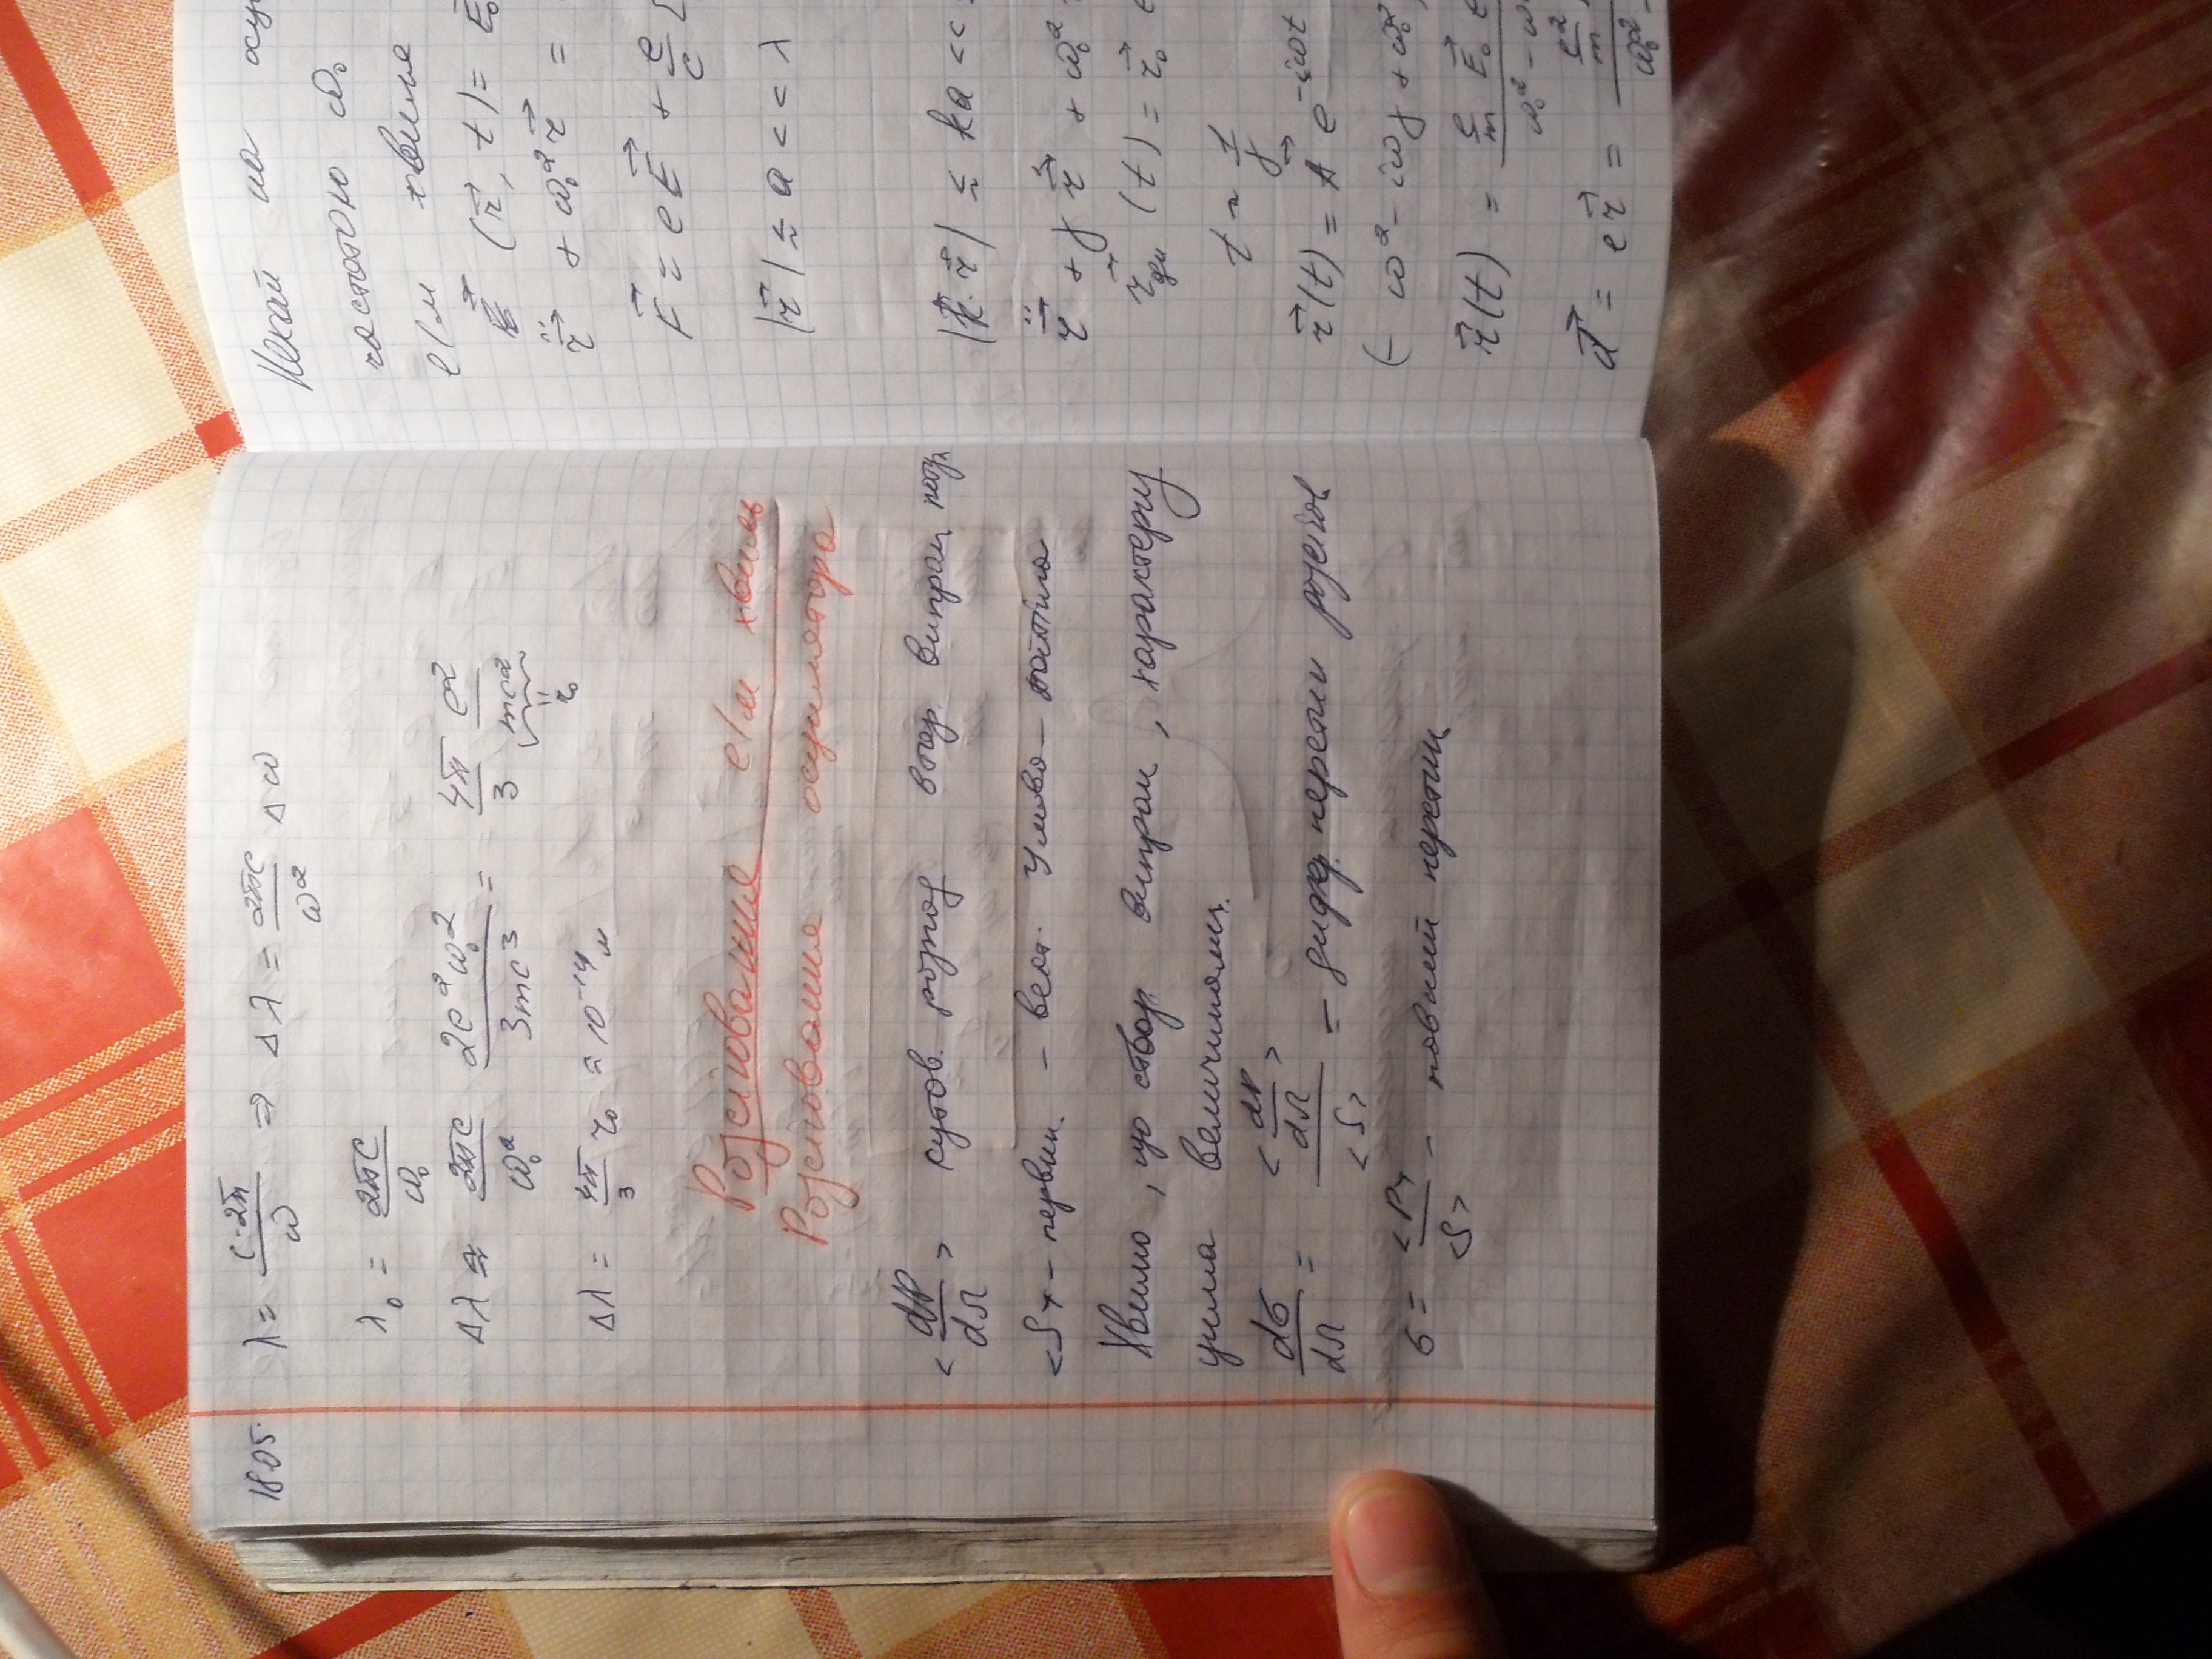 18.05. λ = c·2π/ω ⇒ Δλ = 2πc/ω² Δω
λ₀ = 2πc/ω₀
Δλ ≈ 2πc/ω₀² 2e²ω₀²/3mc³ = 4π/3 e²/mc² r₀
Δλ = 4π/3 r₀ ≈ 10⁻¹⁴ м
Розсіювання е/м хвиль
Розсіювання осцилятора
<dP/dΩ> кутов. розпод втор. випром
<S> – первин. – вект. Умова – Пойтінга
Хвилю, що створ випром, характеру
ючими величинами.
dσ/dΩ = <dP/dΩ>/<S> – дифер. перетин розсіюв
σ = <P>/<S> – повний перетин
Нехай на осц
частотою ω₀
е/м хвиля
E⃗ (r⃗, t) = E⃗₀
r̈⃗ + ω₀² r⃗ =
F⃗ = eE⃗ + e/c [
|r⃗| ≲ a << λ
|k⃗·r⃗| ≲ ka <<
r̈⃗ + γ ṙ⃗ + ω₀²
(t) = r⃗₀ e
t ~ 1/γ
r⃗(t) = A⃗ e^{-iωt}
(– ω² – iωγ + ω₀²
r⃗(t) = e/m E⃗₀ e / ω₀² – ω
d⃗ = e r⃗ = e²/m / ω₀² –